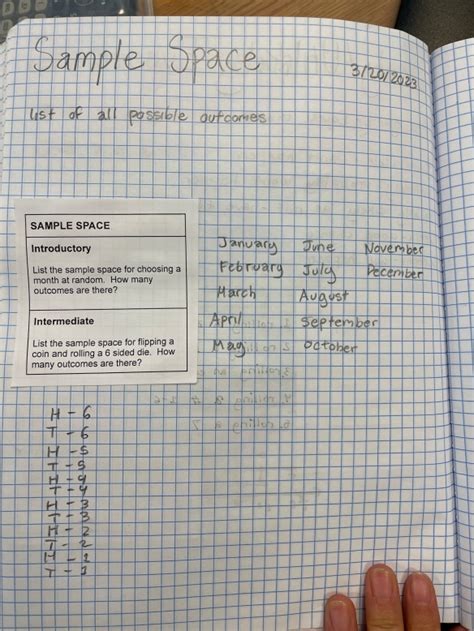 Sample Space
3/20/2023
list of all possible outcomes
SAMPLE SPACE
Introductory
List the sample space for choosing a
month at random. How many
outcomes are there?
Intermediate
List the sample space for flipping a
coin and rolling a 6 sided die. How
many outcomes are there?
January June November
February July December
March August
April September
May October
H - 6
T - 6
H - 5
T - 5
H - 4
T - 4
H - 3
T - 3
H - 2
T - 2
H - 1
T - 1